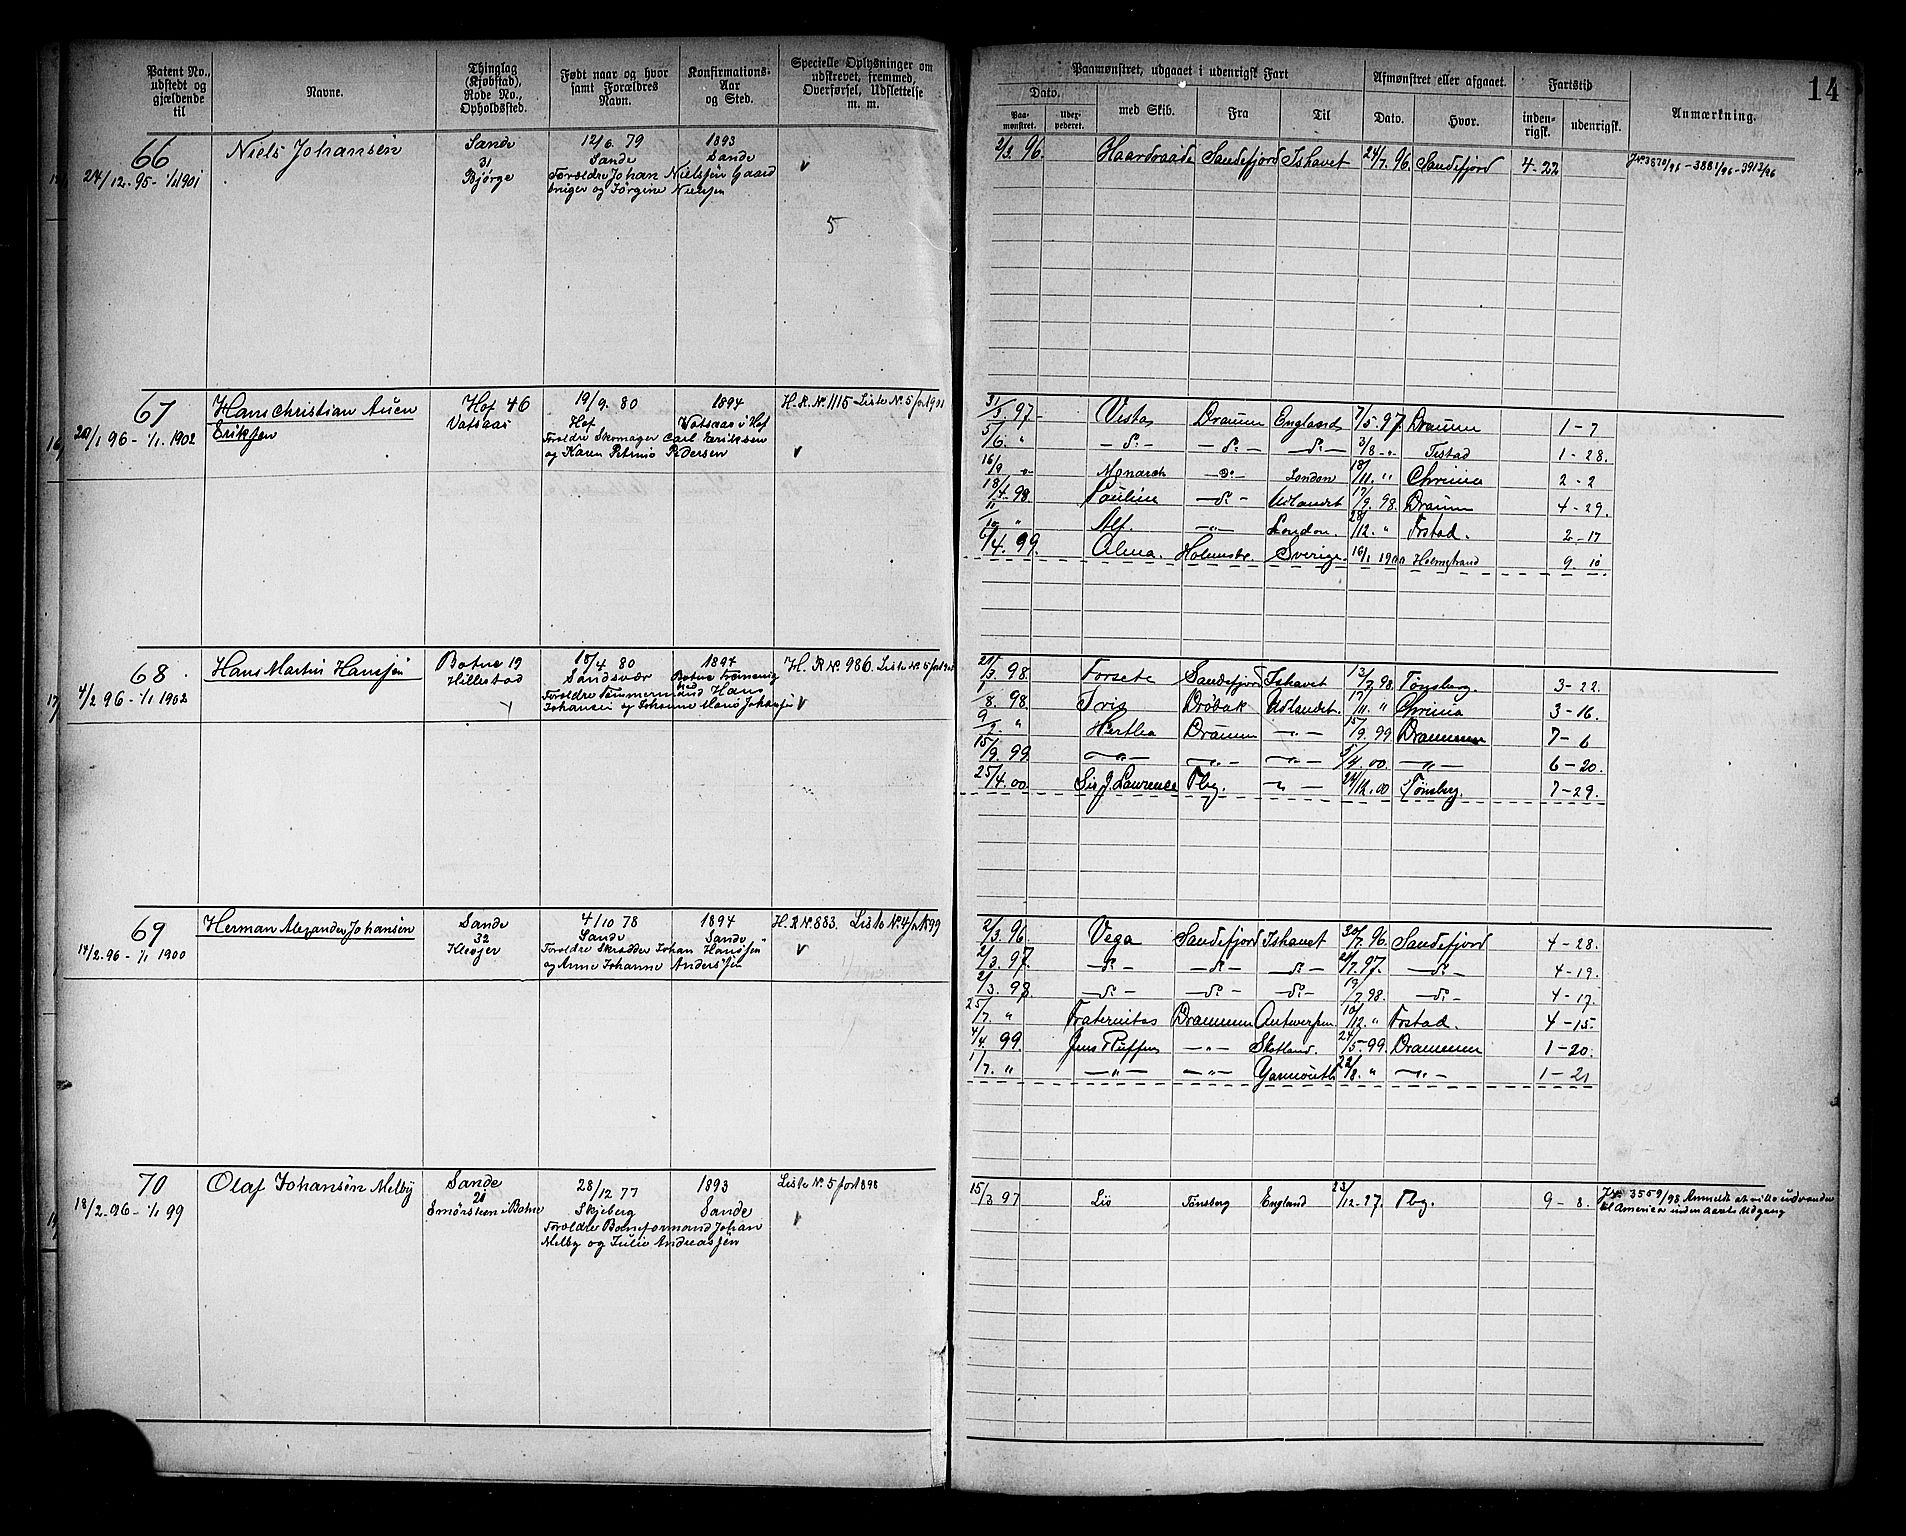 Patent No., udstedt og gjældende til
Navne.
Thinglag (Kjøbstad), Rode No., Opholdssted.
Født naar og hvor samt Forældres Navn.
Konfirmations-Aar og Sted.
Specielle Oplysninger om udskrevet, fremmed, Overførsel, Udslettelse m. m.
Paamønstret, udgaaet i udenrigsk Fart
Afmønstret eller afgaaet.
Fartstid
Anmærkning.
14
Dato.
Paa-mønstret.
med Skib.
Fra
Til
Dato.
Hvor.
inden-rigsk.
udenrigsk.
66 Niels Johansen Sande 12/6 79 1893
24/12 95 - 1/1 1901 31 Sande Sande
Bjørge Forældre Johan Nielsen Gaard
bruger og Jørgine Nielsen
5
2/3 96. Haardraade Sandefjord Ishavet 24/7 96. Sandefjord 4-22 3881/96 - 3913/96
67 Hans Christian Auen Hof 46 19/9. 80 1894 H.R. No. 1115 Liste No. 5 for 1901
20/1 96 - 1/1 1902 Eriksen Vatsaas Hof Vatsaas i Hof
Foroldre Skomager Carl Eriksen
og Karen Petrine Pedersen
31/3. 97 - Vesta Dramm England 7/5 97 Dramm 1-7
5/6. " - do - - do - - do - 3/8 - " 1-28.
16/9 " Monarch - do - London 18/11. " Chrinia 2-2
18/4. 98. Pauline - do - Udlandet 17/9. 98. Dramm 4-29.
11/10 " Alf. - " - London. 28/12. " Frstad. 2-17
6/4. 99. Alma. Holmstr. Sverige. 16/1 1900 Holmstrand 9. 10
68. Hans Martin Hansen Botne 19 18/4 80 1894 H. R No 986. Liste No. 5 for
4/2 96 - 1/1 1902 Hillestad Sandsvær Botne
Foroldre Tømmermand Hans
Johansen og Johanne Marie Johansen
21/3. 98. Forsete Sandefjord Ishavet 13/7 98. Tønsberg. 3-22.
1/8. 98. Drøbak Udlandet. 17/11. " Chrinia 3-16.
9/2. " Hertha Dramm - " - 15/9. 99 Drammen 7-6
15/9. 99. - " - - " - - " - 5/4. 00. - " - 6-20.
25/4. 00 Sir J. Lawrence Tbg. - " - 24/12. 00 Tønsberg. 7-29.
69 Herman Alexander Johansen Sande 4/10 78 1894 H. R No. 883. Liste No. 4 1899
14/2. 96 - 1/1 1900 32 Sande Sande
Klevjer Foroldre Skrædder Johan Hansen
og Anne Johanne Andersen
2/3. 96. Vega Sandefjord Ishavet 30/7. 96. Sandefjord 4-28.
2/3. 97. - do - - do - - do - 21/7. 97. - do - 4-19.
2/3. 98 - do - - do - - do - 19/7. 98. - do - 4-17.
25/7. " Fraternitas Drammen Antwerpen. 10/12. " Frstad. 4-15.
4/4. 99 Jens Ruffen - " - Skotland. 24/5. 99. Drammen 1-20.
1/7. " - " - - " - Yarmouth 22/8. " - " - 1-21
70 Olaf Johansen Melby Sande 28/12 77 1893 Liste No. 5 for 1898
18/2. 96 - 1/1 99 21 Skjeberg Sande
Smørsteen i Botne Foroldre Bomformand Johan
Melby og Julie Andreassen
15/3 97 Lis Tønsberg England 23/12. 97. Tbg. 9-8. Jr. 3559/98 Anmeldt at ville udvandre
til America inden Aarets Udgang